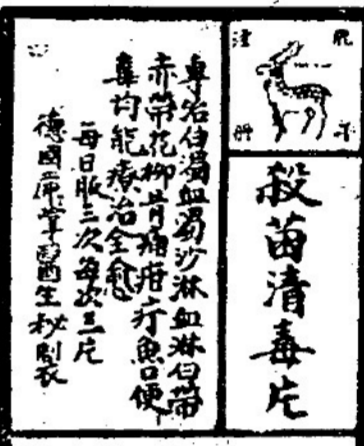 註冊
殺菌清毒片
專治白濁血濁沙淋血淋白帶
赤帶花柳骨痛疳疔魚口便
毒均能療治全愈
每日服三次每次三片
德國醫生秘製